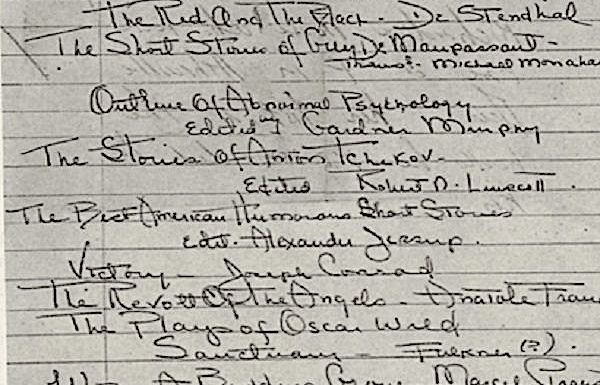 The Red And The Black - De Stendhal
The Short Stories of Guy De Maupassant -
Trans - Michael Monahan
Outline Of Abnormal Psychology
Edited Gardner Murphy
The Stories Of Anton Tchekov -
Edited Robert N. Linscott.
The Best American Humorous Short Stories
Edit. Alexander Jessup.
Victory - Joseph Conrad
The Revolt Of The Angels - Anatole Fran
The Plays of Oscar Wild
Sanctuary - Fulkner (?).
A Budding Grove Marcel